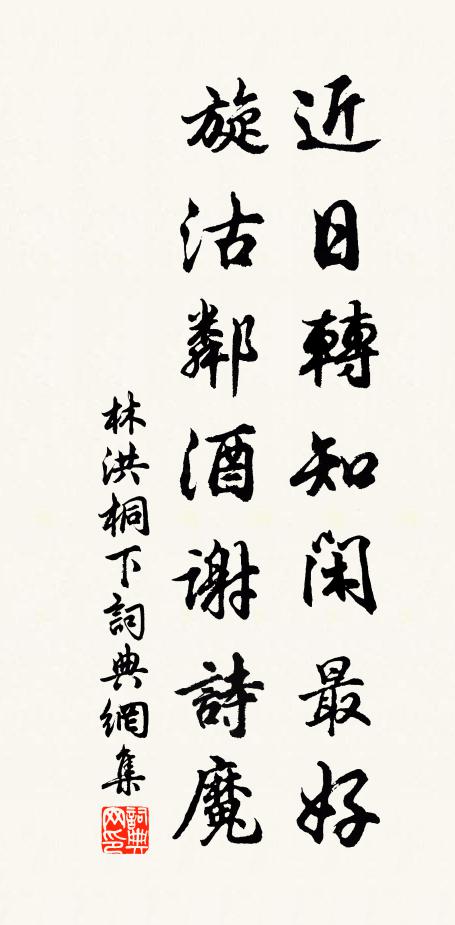 近日轉知閑最好
旋沽鄰酒謝詩魔
林洪桐下詞典網集
詞典网印